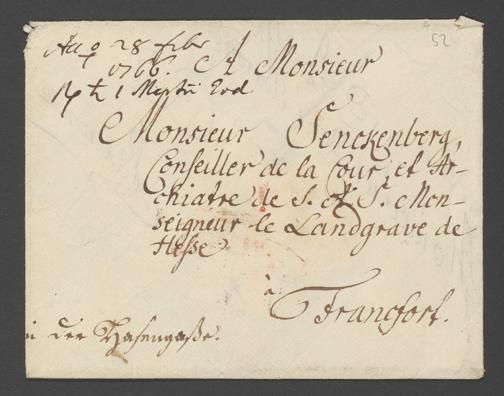 52
28 febr
1766. A Monsieur
Monsieur Senckenberg,
Conseiller de la Cour, et Ar-
chiatre de S. A. S. Mon-
seigneur le Landgrave de
Hesse
à
Francfort.
in der Hasengaße.